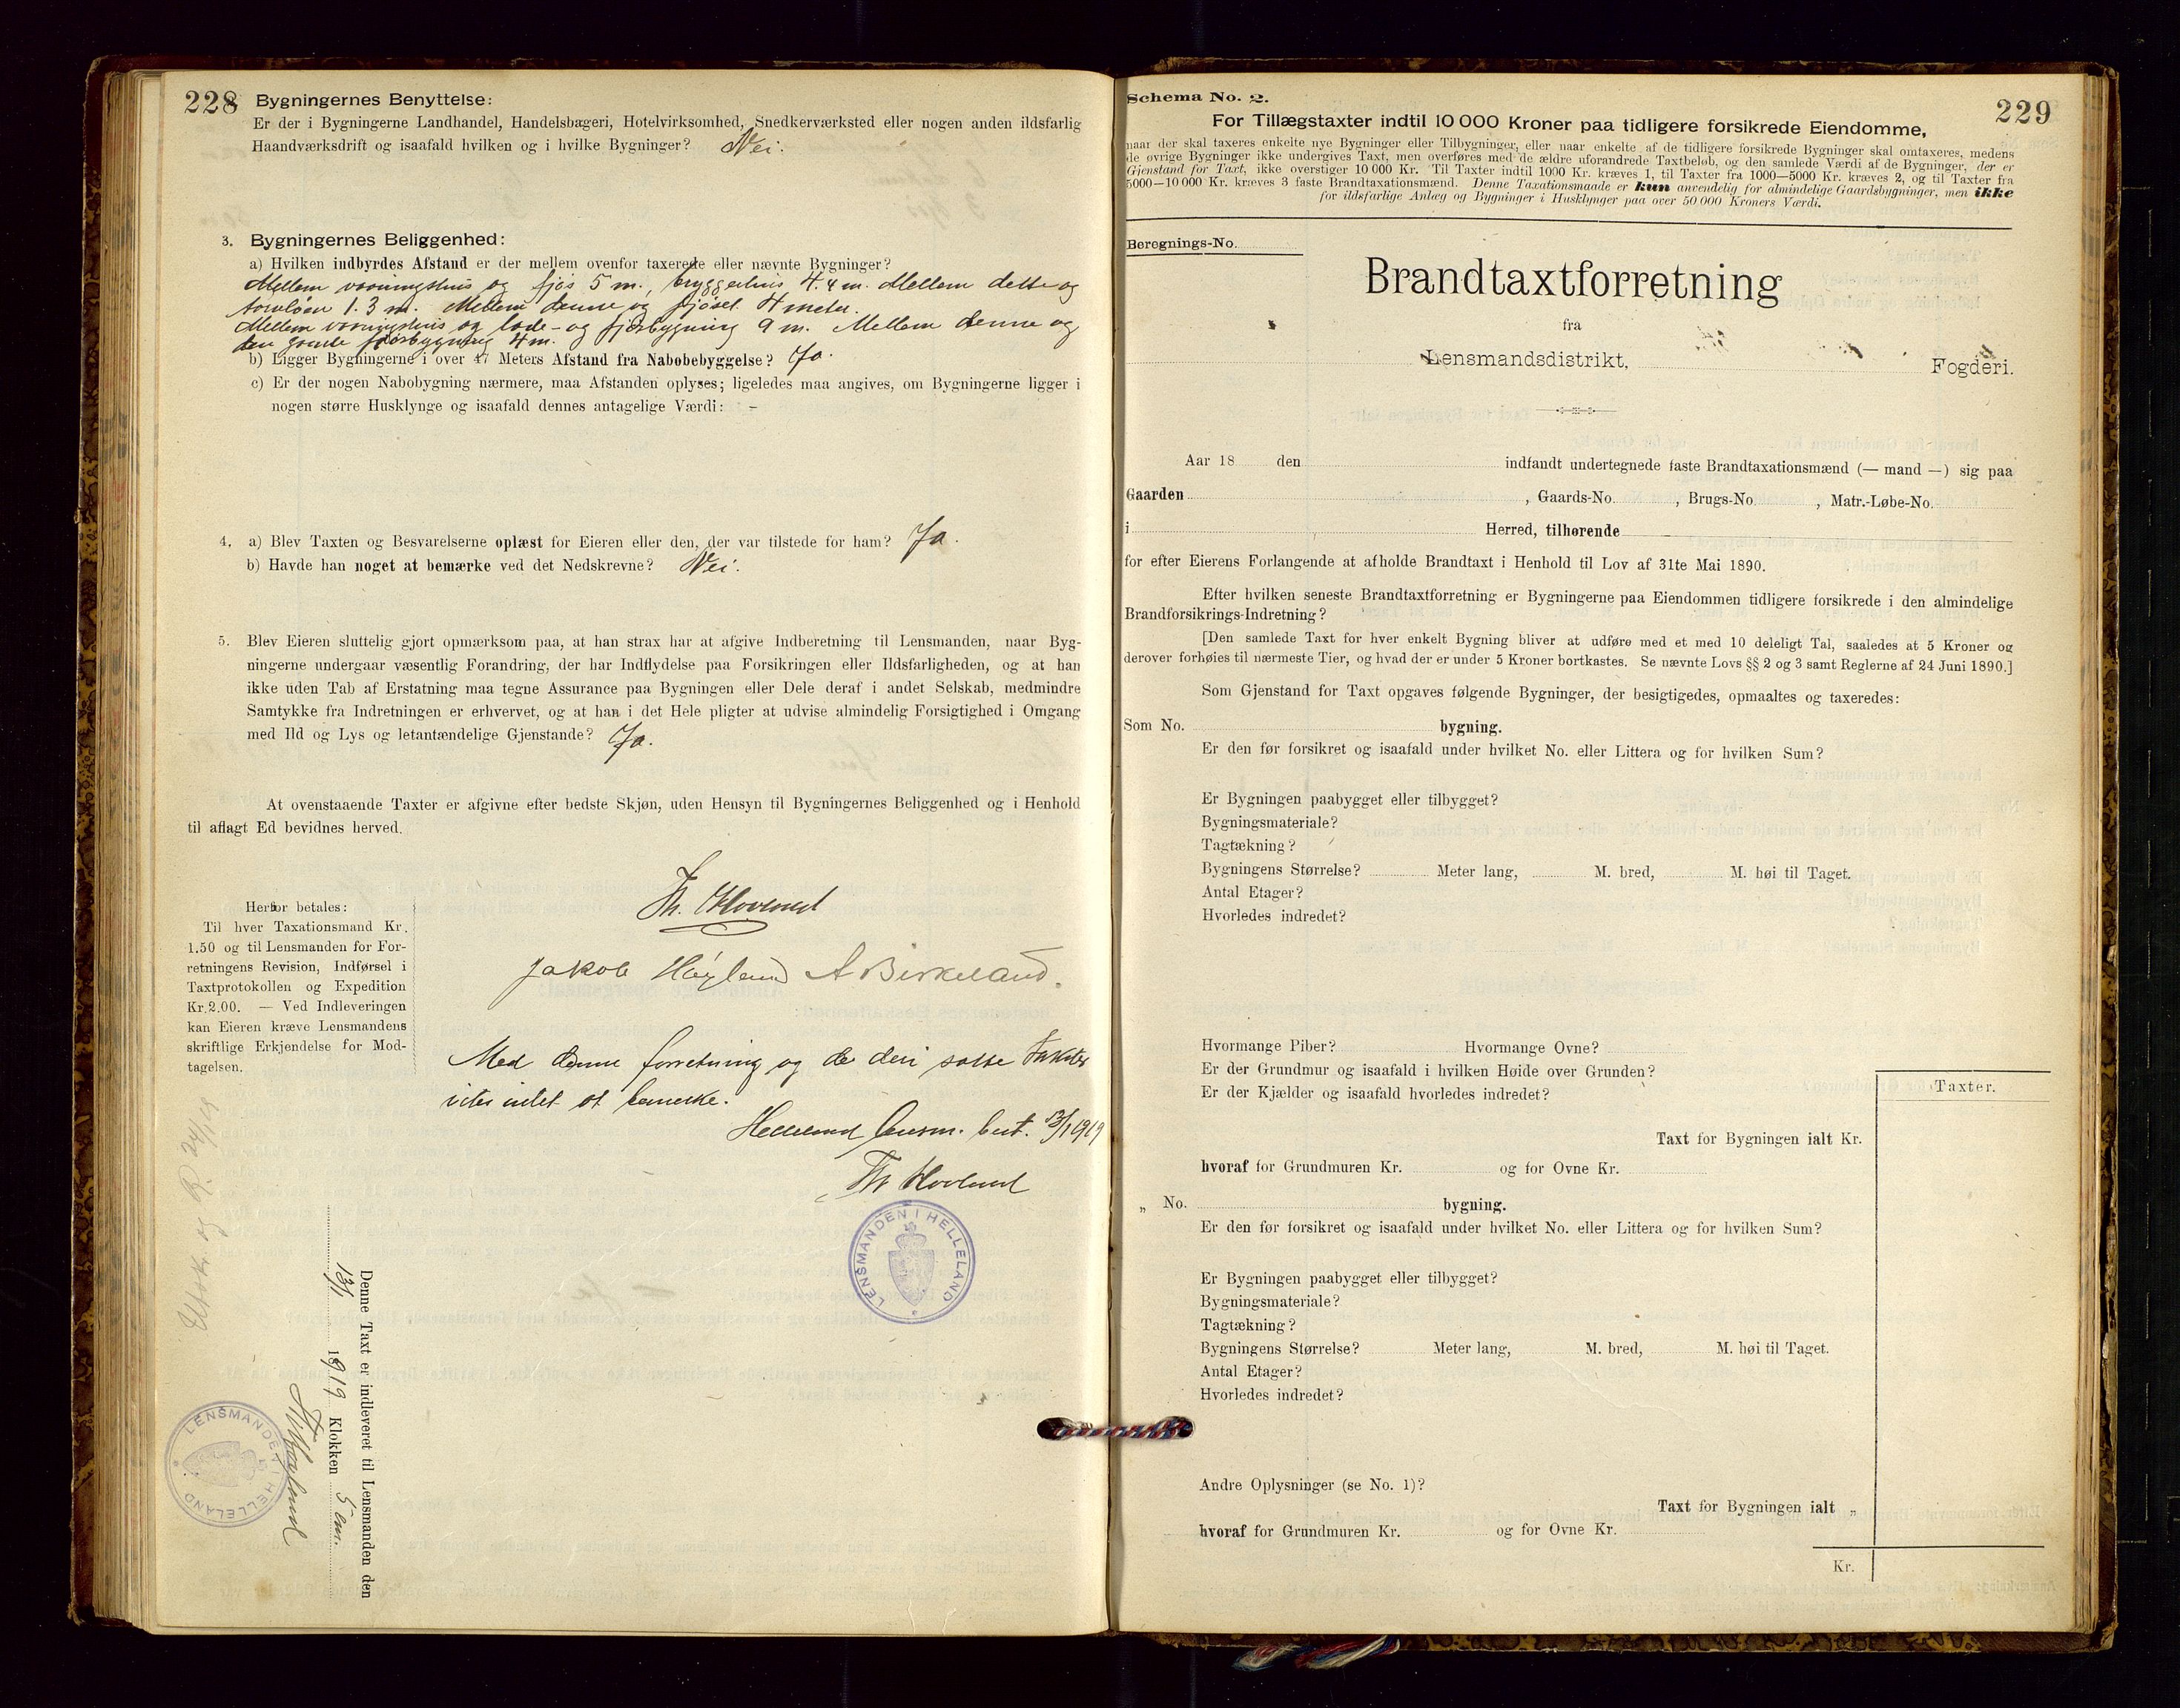 228 Bygningernes Benyttelse:
Er der i Bygningerne Landhandel, Handelsbageri, Hotelvirksomhed, Snedkerværksted eller nogen anden ildsfarlig
Haandværksdrift og isaafald hvilken og i hvilke Bygninger? Nei.
3. Bygningernes Beliggenhed:
a) Hvilken indbyrdes Afstand er der mellem ovenfor taxerede eller nævnte Bygninger?
Mellem vooningshus og fjös 5 m., bryggerhus 4.4 m. Mellem dette og
1.3 m. Mellem denne og fjöset 4 meter.
Mellem vooningshus og lade- og fjösbygning 9 m. Mellem denne og
den gamle fjösbygning 4 m.
b) Ligger Bygningerne i over 47 Meters Afstand fra Nabobebyggelse? Ja.
c) Er der nogen Nabobygning nærmere, maa Afstanden oplyses; ligeledes maa angives, om Bygningerne ligger i
nogen større Husklynge og isaafald dennes antagelige Værdi: –
4. a) Blev Taxten og Besvarelserne oplæst for Eieren eller den, der var tilstede for ham? Ja.
b) Havde han noget at bemærke ved det Nedskrevne? Nei.
5. Blev Eieren sluttelig gjort opmærksom paa, at han strax har at afgive Indberetning til Lensmanden, naar Byg-
ningerne undergaar væsentlig Forandring, der har Indflydelse paa Forsikringen eller Ildsfarligheden, og at han
ikke uden Tab af Erstatning maa tegne Assurance paa Bygningen eller Dele deraf i andet Selskab, medmindre
Samtykke fra Indretningen er erhvervet, og at han i det Hele pligter at udvise almindelig Forsigtighed i Omgang
med Ild og Lys og letantændelige Gjenstande? Ja.
At ovenstaaende Taxter er afgivne efter bedste Skjøn, uden Hensyn til Bygningernes Beliggenhed og i Henhold
til aflagt Ed bevidnes herved.
Th. Hovland
Jakob Høyland A Birkeland.
Herfor betales:
Til hver Taxationsmand Kr.
1.50 og til Lensmanden for For-
retningens Revision, Indførsel i
Taxtprotokollen og Expedition
Kr. 2.00. — Ved Indleveringen
kan Eieren kræve Lensmandens
skriftlige Erkjendelse for Mod-
tagelsen.
Med denne forretning og de deri satte takster
vites intet at bemerke.
Helleland lensm. best. 13/1 1919
Th Hovland
LENSMANDEN I HELLELAND
Utskr. og R. 24/1 19
Denne Taxt er indleveret til Lensmanden den
13/1 1919 Klokken 5 em.
Th Hovland
LENSMANDEN I HELLELAND
Schema No. 2. 229
For Tillægstaxter indtil 10 000 Kroner paa tidligere forsikrede Eiendomme,
naar der skal taxeres enkelte nye Bygninger eller Tilbygninger, eller naar enkelte af de tidligere forsikrede Bygninger skal omtaxeres, medens
de øvrige Bygninger ikke undergives Taxt, men overføres med de ældre uforandrede Taxtbeløb, og den samlede Værdi af de Bygninger, der er
Gjenstand for Taxt, ikke overstiger 10 000 Kr. Til Taxter indtil 1000 Kr. kræves 1, til Taxter fra 1000—5000 Kr. kræves 2, og til Taxter fra
5000—10 000 Kr. kræves 3 faste Brandtaxationsmænd. Denne Taxationsmaade er kun anvendelig for almindelige Gaardsbygninger, men ikke
for ildsfarlige Anlæg og Bygninger i Husklynger paa over 50 000 Kroners Værdi.
Beregnings-No.
Brandtaxtforretning
fra
Lensmandsdistrikt, Fogderi.
Aar 18 den indfandt undertegnede faste Brandtaxationsmænd (— mand —) sig paa
Gaarden , Gaards-No. , Brugs-No. , Matr.-Løbe-No.
i Herred, tilhørende
for efter Eierens Forlangende at afholde Brandtaxt i Henhold til Lov af 31te Mai 1890.
Efter hvilken seneste Brandtaxtforretning er Bygningerne paa Eiendommen tidligere forsikrede i den almindelige
Brandforsikrings-Indretning?
[Den samlede Taxt for hver enkelt Bygning bliver at udføre med et med 10 deleligt Tal, saaledes at 5 Kroner og
derover forhøies til nærmeste Tier, og hvad der er under 5 Kroner bortkastes. Se nævnte Lovs §§ 2 og 3 samt Reglerne af 24 Juni 1890.]
Som Gjenstand for Taxt opgaves følgende Bygninger, der besigtigedes, opmaaltes og taxeredes:
Som No. bygning.
Er den før forsikret og isaafald under hvilket No. eller Littera og for hvilken Sum?
Er Bygningen paabygget eller tilbygget?
Bygningsmateriale?
Tagtækning?
Bygningens Størrelse? Meter lang, M. bred, M. høi til Taget.
Antal Etager?
Hvorledes indredet?
Hvormange Piber? Hvormange Ovne?
Er der Grundmur og isaafald i hvilken Høide over Grunden?
Er der Kjælder og isaafald hvorledes indredet?
Taxter.
Taxt for Bygningen ialt Kr.
hvoraf for Grundmuren Kr. og for Ovne Kr.
„ No. bygning.
Er den før forsikret og isaafald under hvilket No. eller Littera og for hvilken Sum?
Er Bygningen paabygget eller tilbygget?
Bygningsmateriale?
Tagtækning?
Bygningens Størrelse? Meter lang, M. bred, M. høi til Taget.
Antal Etager?
Hvorledes indredet?
Andre Oplysninger (se No. 1)?
Taxt for Bygningen ialt „
hvoraf for Grundmuren Kr. og for Ovne Kr.
Kr.